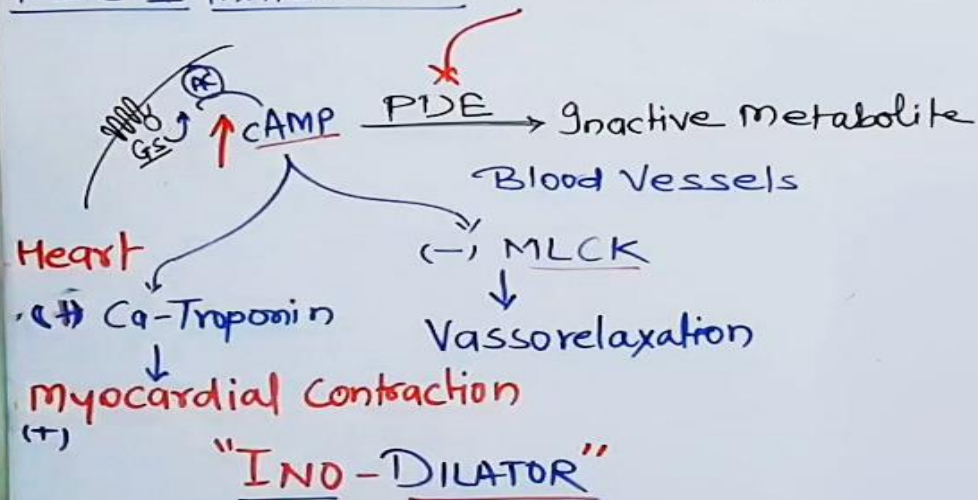 AC
Gs
cAMP
PDE
Inactive Metabolite
Blood Vessels
Heart
(-) MLCK
(+) Ca-Troponin
Vassorelaxation
Myocardial Contraction
(+)
"INO-DILATOR"